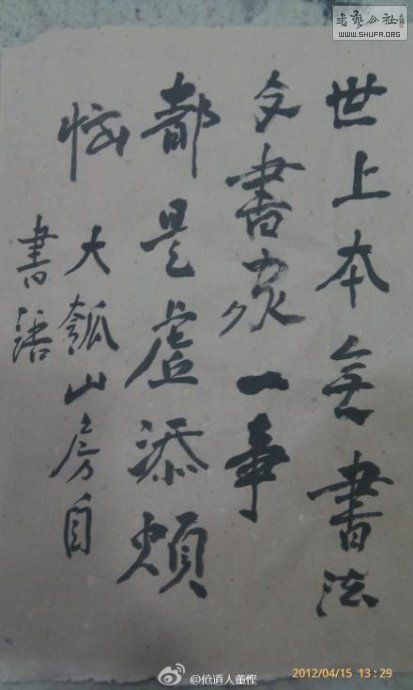 书艺公社
WWW.SHUFA.ORG
世上本無書法
書家一事
都是虛添煩
惱 大瓢山房自
書語
@伧道人董慳
2012/04/15 13:29